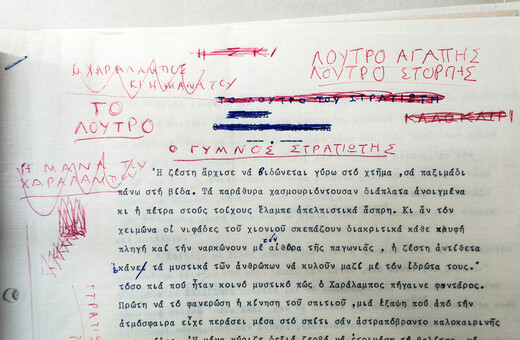 ΛΟΥΤΡΟ ΑΓΑΠΗΣ
ΛΟΥΤΡΟ ΣΤΟΡΓΗΣ
Ο ΧΑΡΑΛΑΜΠΟΣ
ΚΙ Η ΜΑΝΑ ΤΟΥ
ΤΟ
ΛΟΥΤΡΟ
ΤΟ ΛΟΥΤΡΟ ΤΟΥ ΣΤΡΑΤΙΩΤΗ
ΚΑΛΟΚΑΙΡΙ
Ο ΓΥΜΝΟΣ ΣΤΡΑΤΙΩΤΗΣ
Η ΜΑΝΑ ΤΟΥ
ΧΑΡΑΛΑΜΠΟΥ
Ἡ ζέστη ἄρχισε νά βιδώνεται γύρω στό χτῆμα ,σά παξιμάδι
πάνω στή βίδα. Τά παράθυρα χασμουριόντουσαν διάπλατα ἀνοιγμένα
κι ἡ πέτρα στούς τοίχους ἔλαμπε ἀπελπιστικά ἄσπρη. Κι ἄν τόν
χειμώνα οἱ νιφάδες τοῦ χιονιοῦ σκεπάζουν διακριτικά κάθε κρυφή
πληγή καί τήν ναρκώνουν μέ τόν αἰθέρα τῆς παγωνιᾶς , ἡ ζέστη ἀντίθετα
κάνει τά μυστικά τῶν ἀνθρώπων νά κυλοῦν μαζί μέ τόν ἱδρώτα τους.
τόσο πιά πού ἦταν κοινό μυστικό πώς ὁ Χαράλαμπος πήγαινε φαντάρος.
Πρώτη νά τό φανερώση ἡ κίνηση τοῦ σπιτιοῦ ,μιά ἔξαψη πού ἀπό τήν
ἀτμόσφαιρα εἶχε περάσει μέσα στό σπίτι σάν ἀστραπόβροντο καλοκαιρινῆς
ΣΤΡΑΤΙΩ